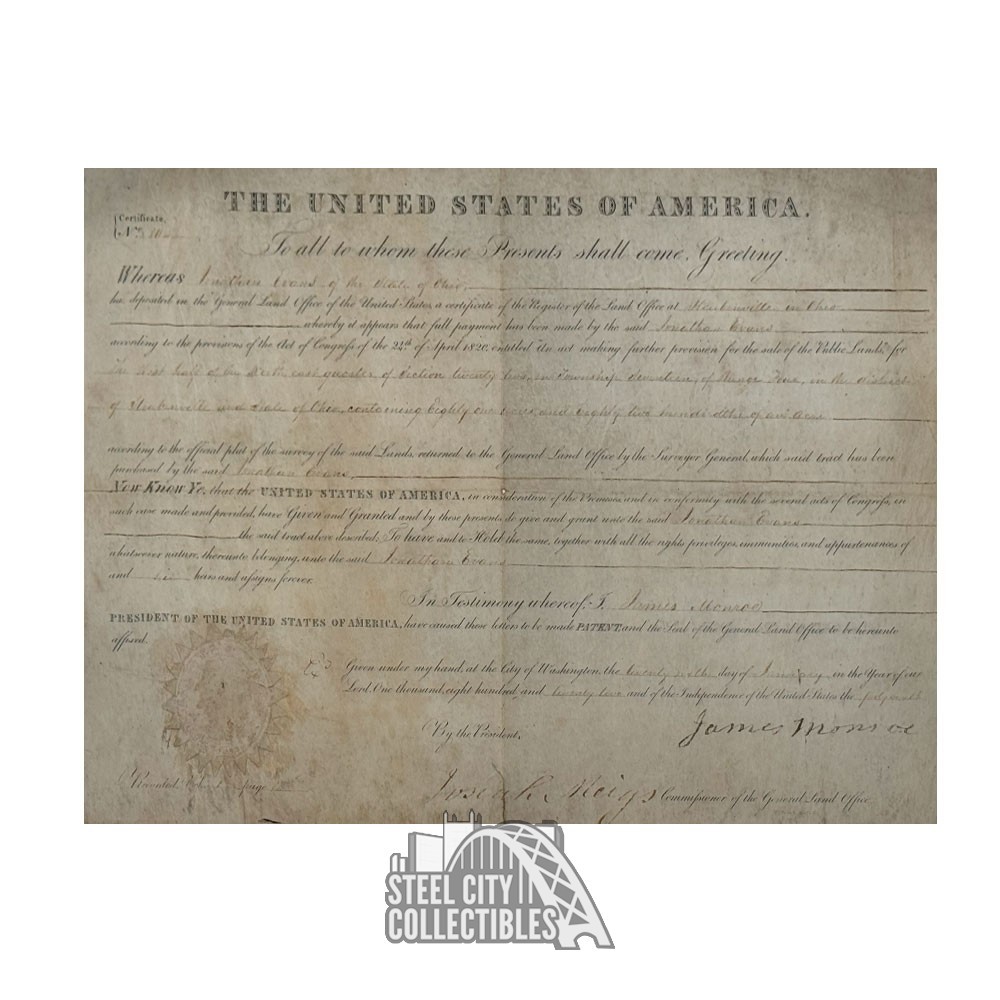 THE UNITED STATES OF AMERICA.
Certificate,
No.
To all to whom these Presents shall come, Greeting.
Whereas Jonathan Evans of the State of Ohio,
has deposited in the General Land Office of the United States, a certificate of the Register of the Land Office at Steubenville in Ohio
whereby it appears that full payment has been made by the said Jonathan Evans
according to the provisions of the Act of Congress of the 24th of April 1820, entitled "An act making further provision for the sale of the Public Lands," for
the west half of the North east quarter of Section twenty two, in Township seventeen, of Range four, in the district
of Steubenville and State of Ohio, containing Eighty one acres, and eighty two hundredths of an acre
according to the official plat of the survey of the said Lands, returned to the General Land Office by the Surveyor General, which said tract has been
purchased by the said Jonathan Evans
Now Know Ye, that the UNITED STATES OF AMERICA, in consideration of the Premises, and in conformity with the several acts of Congress, in
such case made and provided, have Given and Granted and by these presents, do give and grant unto the said Jonathan Evans
the said tract above described, To have and to Hold the same, together with all the rights, privileges, immunities, and appurtenances of
whatsoever nature, thereunto belonging, unto the said Jonathan Evans
and his heirs and assigns forever.
In Testimony whereof, I, James Monroe
PRESIDENT OF THE UNITED STATES OF AMERICA, have caused these letters to be made PATENT, and the Seal of the General Land Office to be hereunto
affixed.
Given under my hand, at the City of Washington, the twenty sixth day of January in the Year of our
Lord, One thousand, eight hundred and twenty two and of the Independence of the United States the forty sixth
James Monroe
By the President,
Recorded, Vol. page
Josiah Meigs Commissioner of the General Land Office
STEEL CITY
COLLECTIBLES